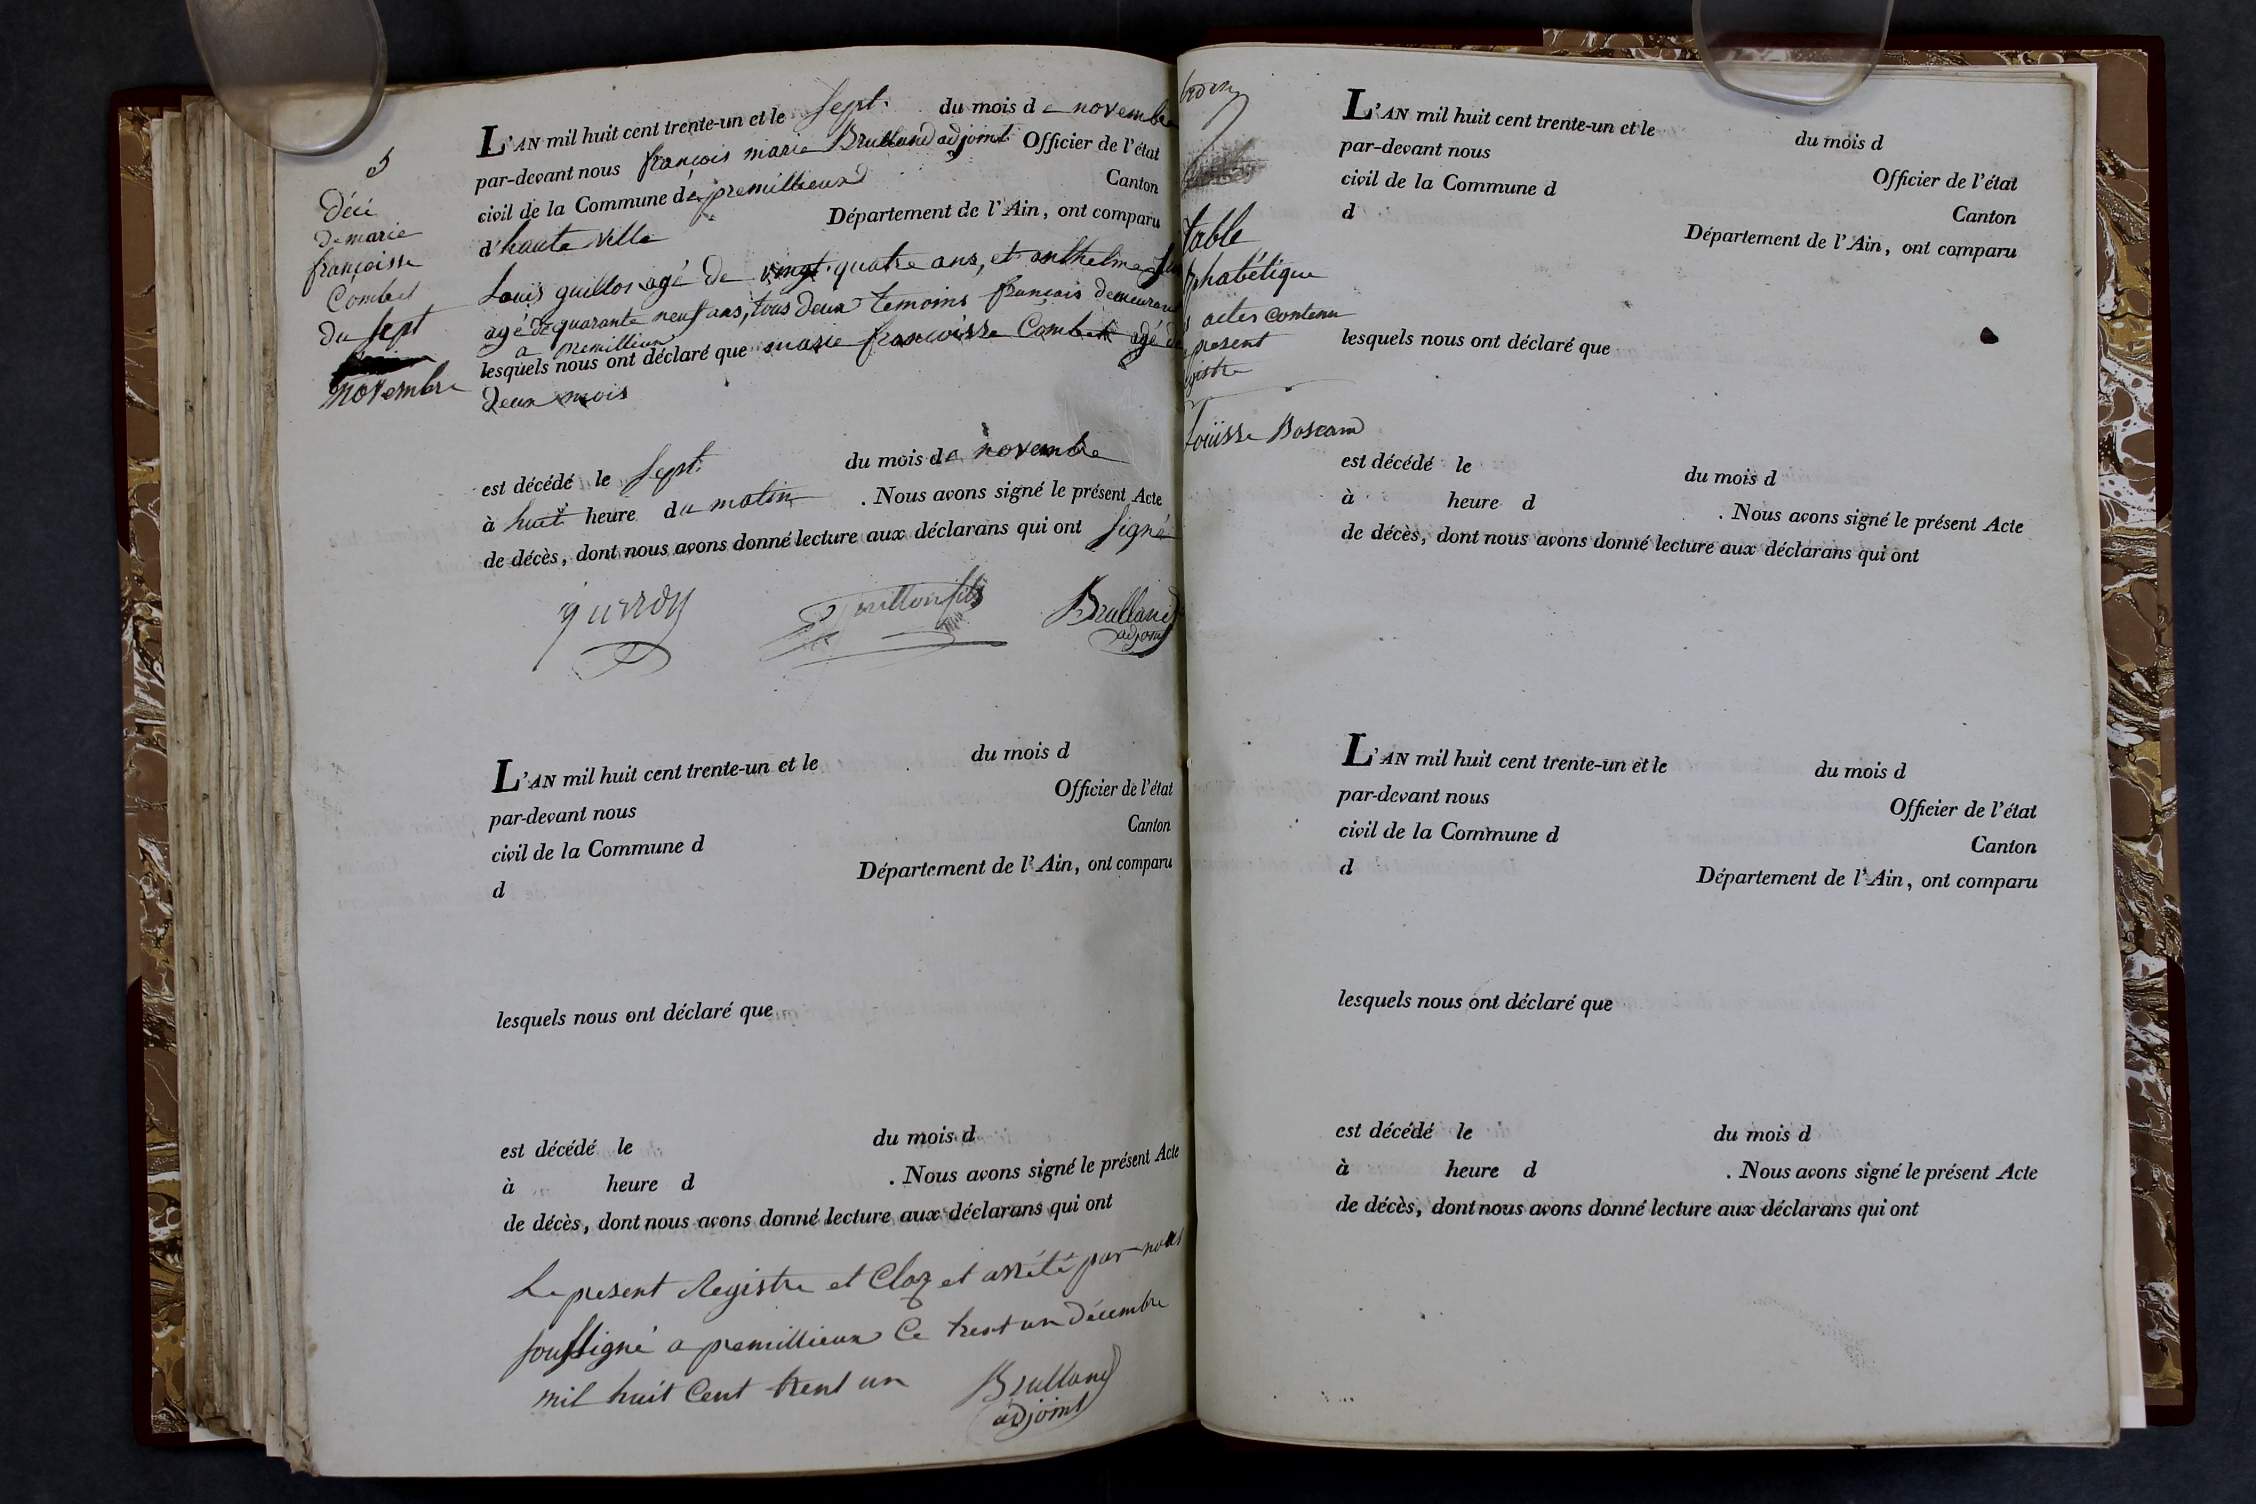 5
Déci
de marie
françoisse
Combet
du sept
novembre
L'AN mil huit cent trente-un et le sept. du mois de novembre
par-devant nous françois marie Brulland adjoint Officier de l'état
civil de la Commune de premillieux Canton
d'haute ville Département de l'Ain, ont comparu
Louis guillon agé de vingt-quatre ans, et anthelme
agé de quarante neuf ans, tous deux temoins français demeurant
a premillieux
lesquels nous ont déclaré que marie francoisse Combet agé de
deux mois
est décédé le sept. du mois de novembre
à huit heure du matin . Nous avons signé le présent Acte
de décès, dont nous avons donné lecture aux déclarans qui ont signé
Brulland
adjoint
L'AN mil huit cent trente-un et le du mois d
par-devant nous Officier de l'état
civil de la Commune d Canton
d Département de l'Ain, ont comparu
lesquels nous ont déclaré que
est décédé le du mois d
à heure d . Nous avons signé le présent Acte
de décès, dont nous avons donné lecture aux déclarans qui ont
Le present Registre et Cloz et arrété par nous
soussigné a premillieux Ce trent un décembre
mil huit Cent trent un
Brulland
adjoint
table
phabétique
actes contenu
present
gistre
L'AN mil huit cent trente-un et le du mois d
par-devant nous Officier de l'état
civil de la Commune d Canton
d Département de l'Ain, ont comparu
lesquels nous ont déclaré que
est décédé le du mois d
à heure d . Nous avons signé le présent Acte
de décès, dont nous avons donné lecture aux déclarans qui ont
L'AN mil huit cent trente-un et le du mois d
par-devant nous Officier de l'état
civil de la Commune d Canton
d Département de l'Ain, ont comparu
lesquels nous ont déclaré que
est décédé le du mois d
à heure d . Nous avons signé le présent Acte
de décès, dont nous avons donné lecture aux déclarans qui ont